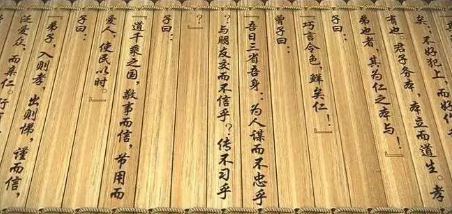 矣，不好犯上，而好作
有也。君子务本，本立而道生。孝
弟也者，其为仁之本与！』
子曰：
巧言令色，鲜矣仁！』
曾子曰：
吾日三省吾身：为人谋而不忠乎
？与朋友交而不信乎？传不习乎
？』
子曰：
道千乘之国，敬事而信，节用而
爱人，使民以时。』
子曰：
弟子 入则孝 出则悌，谨而信，
泛爱众，而亲仁。行有